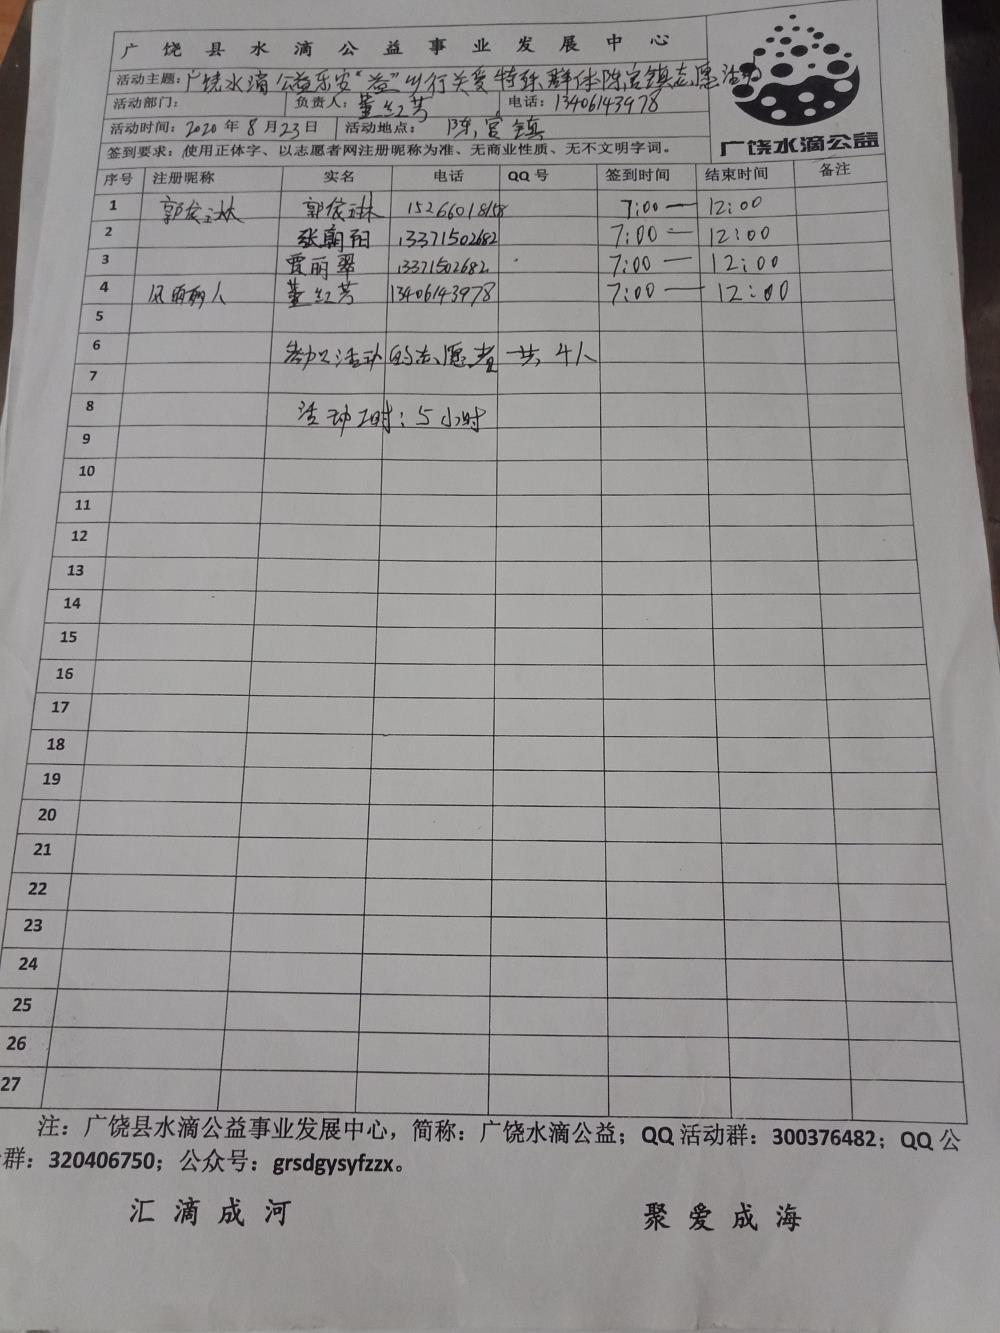 广饶县水滴公益事业发展中心
活动主题:广饶水滴公益乐安“益”心行关爱特殊群体陈官镇志愿活动
活动部门: 负责人:董红芳 电话:13406143978
活动时间:2020年8月23日 活动地点:陈官镇
广饶水滴公益
签到要求:使用正体字、以志愿者网注册昵称为准、无商业性质、无不文明字词。
序号 注册昵称 实名 电话 QQ号 签到时间 结束时间 备注
1 郭俊琳 郭俊琳 15266018158 7:00 — 12:00
2 张朝阳 13371502682 7:00 — 12:00
3 贾丽翠 13371502682 7:00 — 12:00
4 风雨丽人 董红芳 13406143978 7:00 — 12:00
5
6 参加活动的志愿者一共4人
7
8 活动工时:5小时
9
10
11
12
13
14
15
16
17
18
19
20
21
22
23
24
25
26
27
注:广饶县水滴公益事业发展中心,简称:广饶水滴公益;QQ活动群:300376482;QQ公
群:320406750;公众号:grsdgysyfzzx。
汇滴成河 聚爱成海